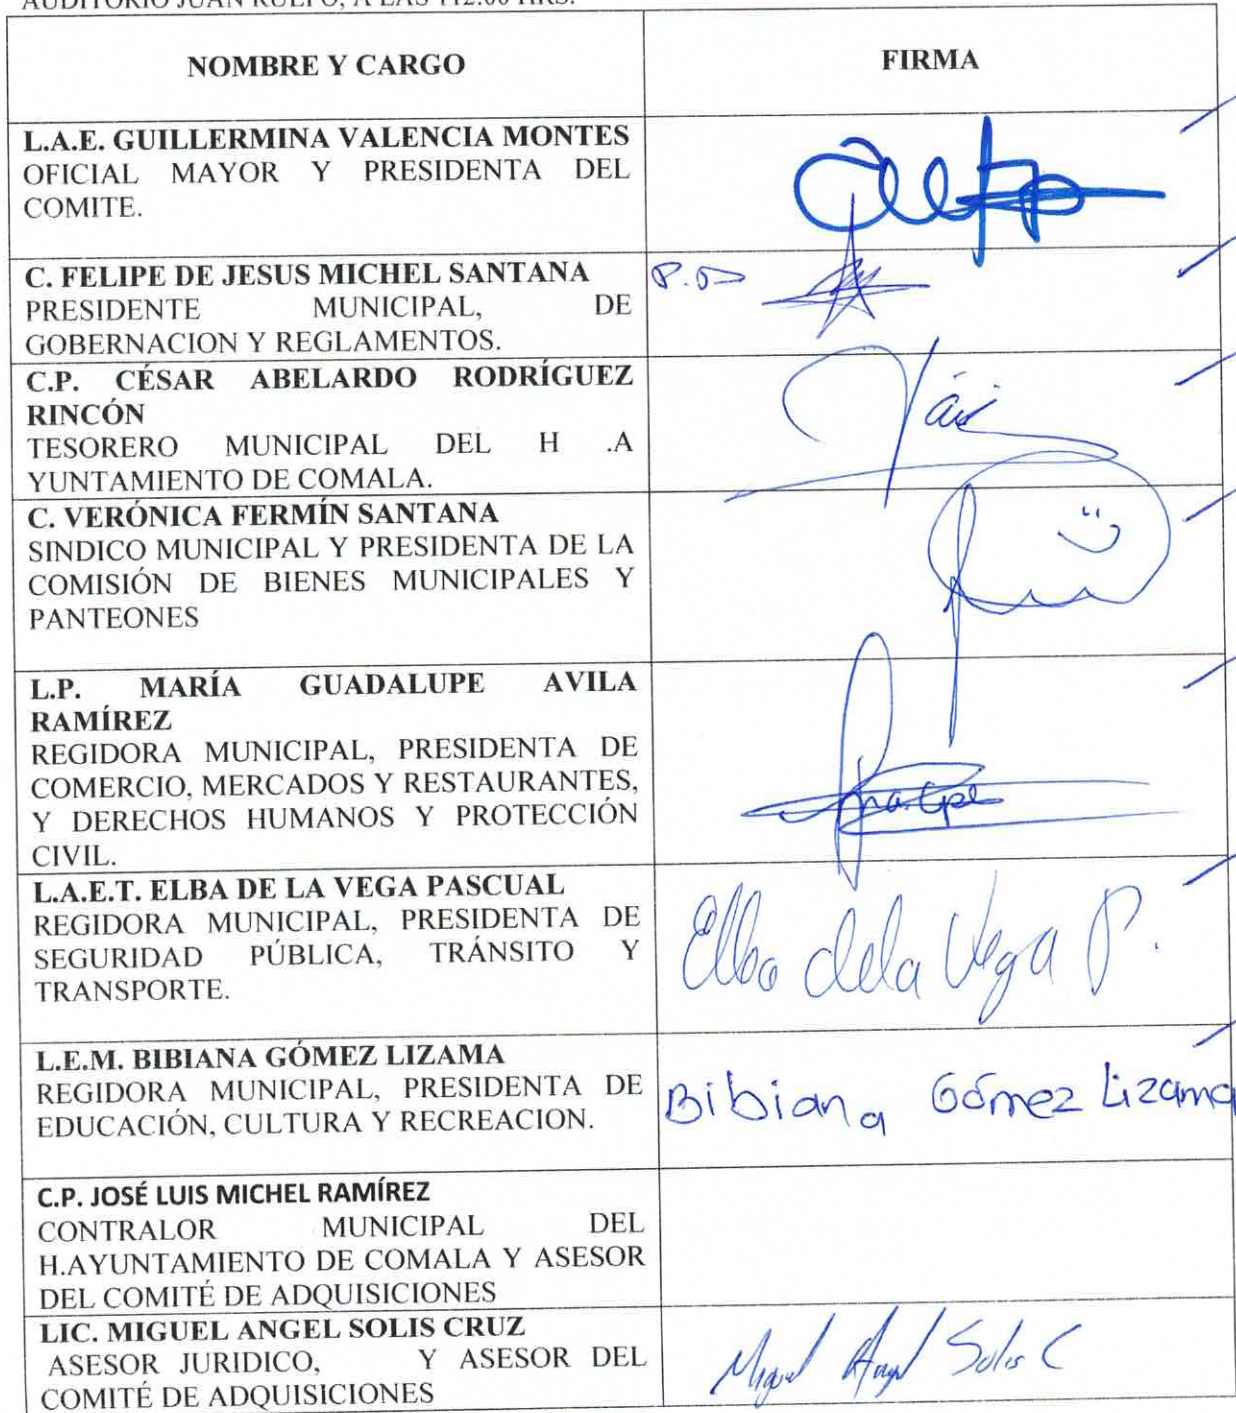 AUDITORIO JUAN RULFO, A LAS 112:00 HRS.
NOMBRE Y CARGO
FIRMA
L.A.E. GUILLERMINA VALENCIA MONTES
OFICIAL MAYOR Y PRESIDENTA DEL
COMITE.
C. FELIPE DE JESUS MICHEL SANTANA
PRESIDENTE MUNICIPAL, DE
GOBERNACION Y REGLAMENTOS.
C.P. CÉSAR ABELARDO RODRÍGUEZ
RINCÓN
TESORERO MUNICIPAL DEL H .A
YUNTAMIENTO DE COMALA.
C. VERÓNICA FERMÍN SANTANA
SINDICO MUNICIPAL Y PRESIDENTA DE LA
COMISIÓN DE BIENES MUNICIPALES Y
PANTEONES
L.P. MARÍA GUADALUPE AVILA
RAMÍREZ
REGIDORA MUNICIPAL, PRESIDENTA DE
COMERCIO, MERCADOS Y RESTAURANTES,
Y DERECHOS HUMANOS Y PROTECCIÓN
CIVIL.
L.A.E.T. ELBA DE LA VEGA PASCUAL
REGIDORA MUNICIPAL, PRESIDENTA DE
SEGURIDAD PÚBLICA, TRÁNSITO Y
TRANSPORTE.
Elba dela Vega P.
L.E.M. BIBIANA GÓMEZ LIZAMA
REGIDORA MUNICIPAL, PRESIDENTA DE
EDUCACIÓN, CULTURA Y RECREACION.
Bibiana Gómez Lizama
C.P. JOSÉ LUIS MICHEL RAMÍREZ
CONTRALOR MUNICIPAL DEL
H.AYUNTAMIENTO DE COMALA Y ASESOR
DEL COMITÉ DE ADQUISICIONES
LIC. MIGUEL ANGEL SOLIS CRUZ
ASESOR JURIDICO, Y ASESOR DEL
COMITÉ DE ADQUISICIONES
Miguel Angel Solis C